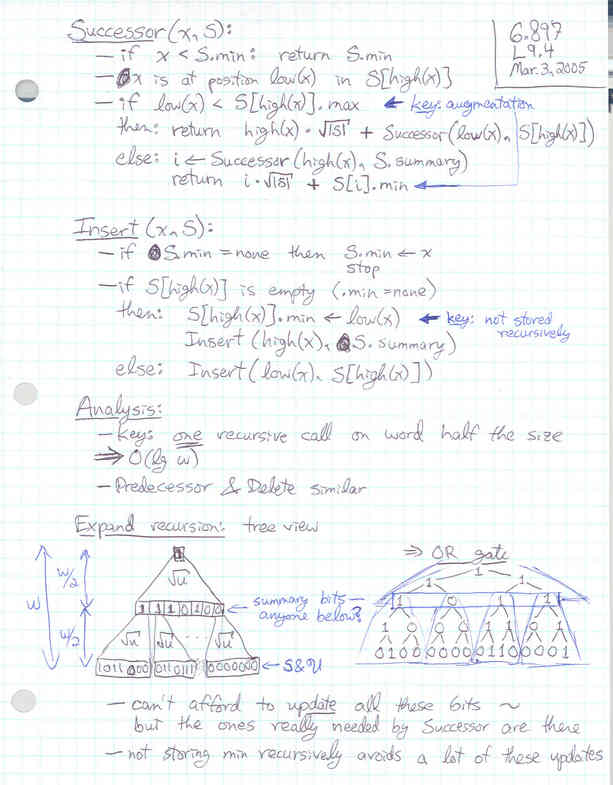 Successor(x, S):
6.897
L9.4
Mar. 3, 2005
– if x < S.min: return S.min
– x is at position low(x) in S[high(x)]
– if low(x) < S[high(x)].max ← key: augmentation
then: return high(x) · √|S| + Successor(low(x), S[high(x)])
else: i ← Successor(high(x), S.summary)
return i·√|S| + S[i].min ←
Insert(x, S):
– if S.min = none then S.min ← x
stop
– if S[high(x)] is empty (.min = none)
then: S[high(x)].min ← low(x) ← key: not stored
recursively
Insert(high(x), S.summary)
else: Insert(low(x), S[high(x)])
Analysis:
– key: one recursive call on word half the size
⇒ O(lg w)
– Predecessor & Delete similar
Expand recursion: tree view
⇒ OR gate
1
√u
w/2
w
w/2
1 1 1 0 1 0 0 ← summary bits –
anyone below?
√u √u ... √u
1011000 0110111 0000000 ← S&U
1
1 1
1 0 1 1
1 0 0 0 0 1 0 1
0100 0000 0110 0001
– can't afford to update all these bits ~
but the ones really needed by Successor are there
– not storing min recursively avoids a lot of these updates